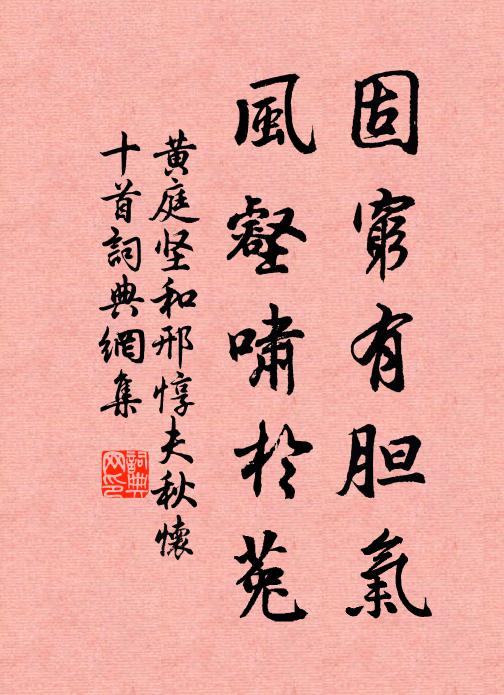 固窮有胆氣
風壑嘯於菟
黄庭坚和邢惇夫秋懷
十首詞典網集
詞典
网印